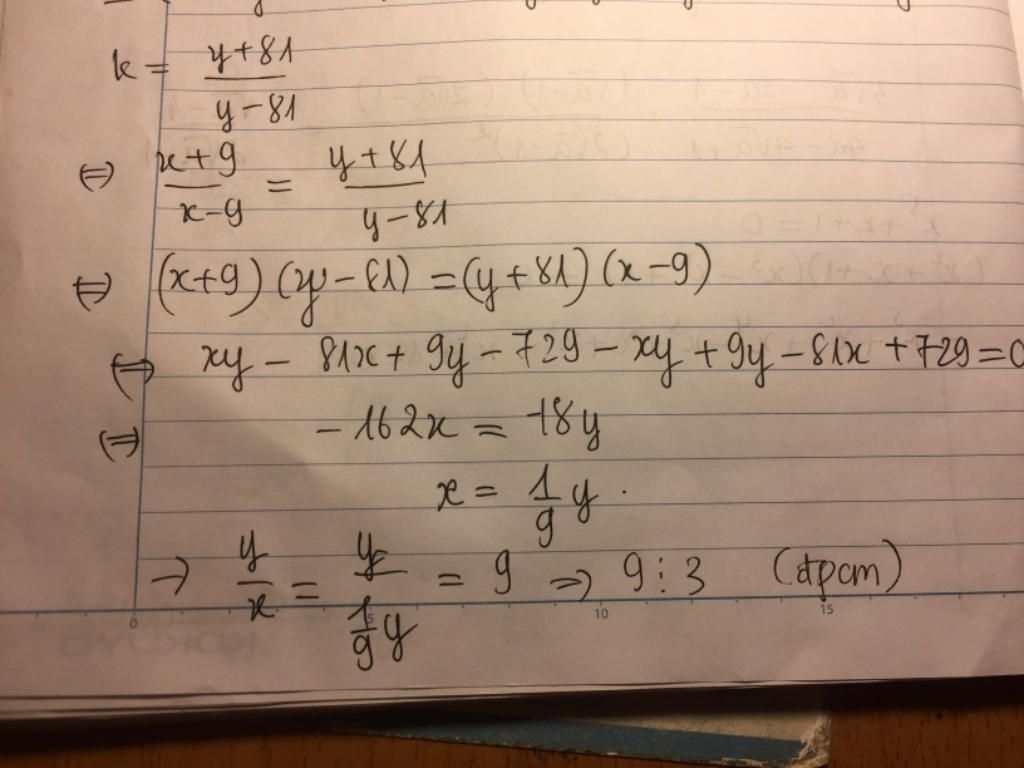 k = \frac{y+81}{y-81}
⇔ \frac{x+9}{x-9} = \frac{y+81}{y-81}
⇔ (x+9)(y-81) = (y+81)(x-9)
⇔ xy - 81x + 9y - 729 - xy + 9y - 81x + 729 = 0
⇔ -162x = -18y
x = \frac{1}{9}y.
→ \frac{y}{x} = \frac{y}{\frac{1}{9}y} = 9 ⇒ 9 ⋮ 3 (đpcm)
0 5 10 15